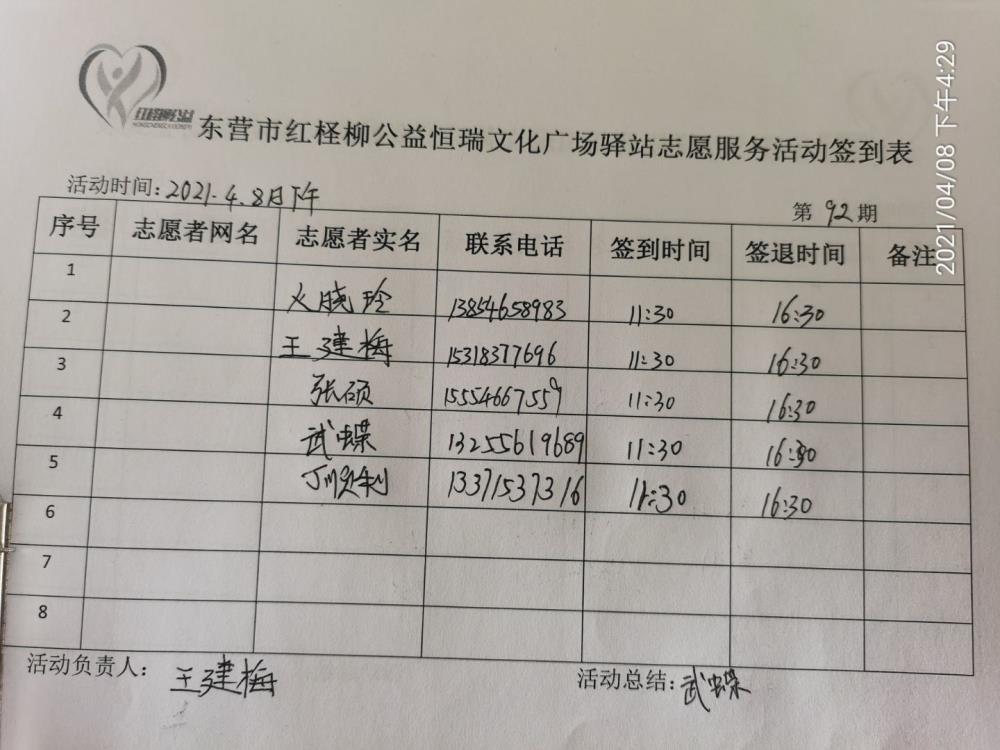 红柽柳公益
东营市红柽柳公益恒瑞文化广场驿站志愿服务活动签到表
活动时间：2021.4.8日下午
第92期
序号 志愿者网名 志愿者实名 联系电话 签到时间 签退时间 备注
1 晓玲 13854658983 11:30 16:30
2 王建梅 15318377696 11:30 16:30
3 张硕 15554667559 11:30 16:30
4 武蝶 13255619689 11:30 16:30
5 丁顺利 13371537316 11:30 16:30
6
7
8
活动负责人：王建梅
活动总结：武蝶
2021/04/08 下午4:29